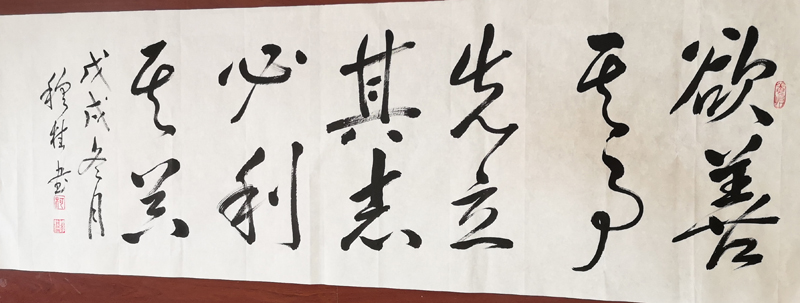 欲善
其事
先立
其志
必利
其器
戊戌冬月
穆桂書